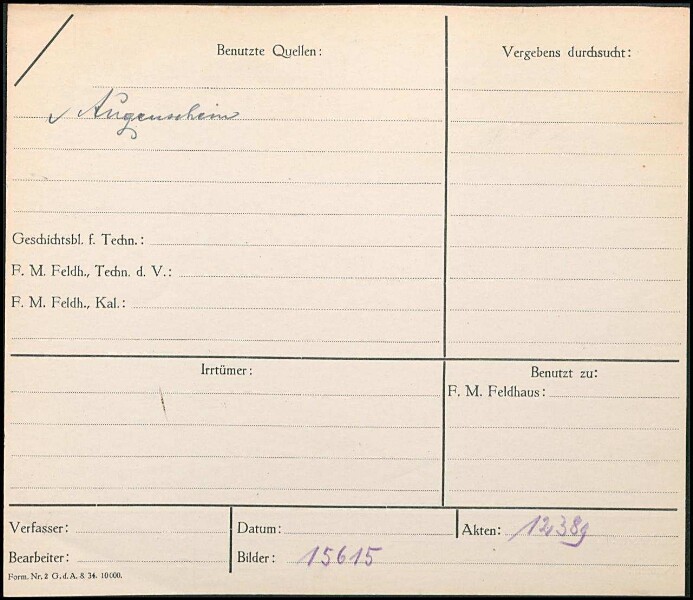 Benutzte Quellen:
Augenschein
Geschichtsbl. f. Techn.:
F. M. Feldh., Techn. d. V.:
F. M. Feldh., Kal.:
Vergebens durchsucht:
Irrtümer:
Benutzt zu:
F. M. Feldhaus:
Verfasser:
Bearbeiter:
Datum:
Bilder: 15615
Akten:
Form. Nr. 2 G. d. A. 8 34. 10000.